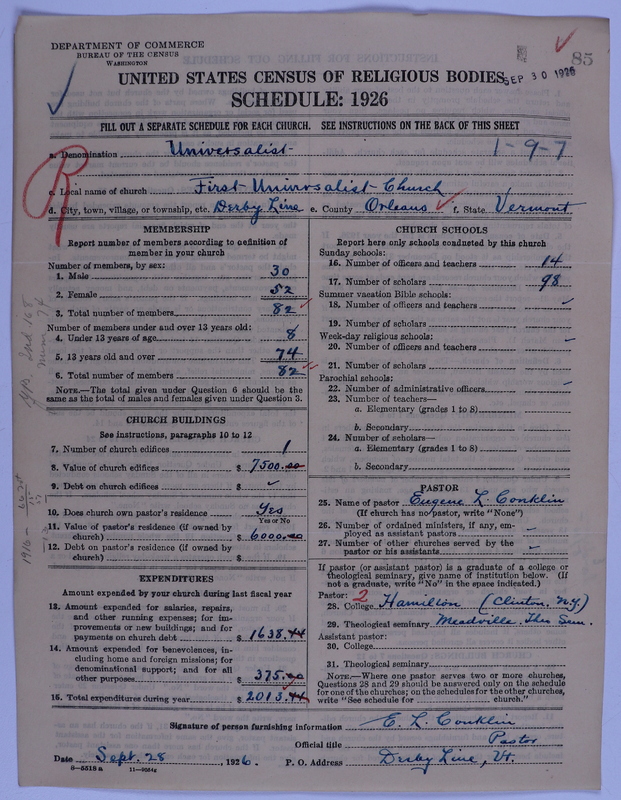 DEPARTMENT OF COMMERCE
BUREAU OF THE CENSUS
WASHINGTON
85
SEP 30 1926
UNITED STATES CENSUS OF RELIGIOUS BODIES
SCHEDULE: 1926
FILL OUT A SEPARATE SCHEDULE FOR EACH CHURCH. SEE INSTRUCTIONS ON THE BACK OF THIS SHEET
a. Denomination Universalist 1-9-7
c. Local name of church First Universalist Church
d. City, town, village, or township, etc. Derby Line e. County Orleans f. State Vermont
MEMBERSHIP
Report number of members according to definition of member in your church
Number of members, by sex:
1. Male 30
2. Female 52
3. Total number of members 82
Number of members under and over 13 years old:
4. Under 13 years of age 8
5. 13 years old and over 74
6. Total number of members 82
NOTE.—The total given under Question 6 should be the same as the total of males and females given under Question 3.
CHURCH BUILDINGS
See instructions, paragraphs 10 to 12
7. Number of church edifices 1
8. Value of church edifices $ 7500.00
9. Debt on church edifices $
10. Does church own pastor's residence Yes
Yes or No
11. Value of pastor's residence (if owned by church) $ 6000.00
12. Debt on pastor's residence (if owned by church) $
EXPENDITURES
Amount expended by your church during last fiscal year
13. Amount expended for salaries, repairs, and other running expenses; for improvements or new buildings; and for payments on church debt $ 1638.44
14. Amount expended for benevolences, including home and foreign missions; for denominational support; and for all other purposes $ 375.00
15. Total expenditures during year $ 2013.44
CHURCH SCHOOLS
Report here only schools conducted by this church
Sunday schools:
16. Number of officers and teachers 14
17. Number of scholars 98
Summer vacation Bible schools:
18. Number of officers and teachers
19. Number of scholars
Week-day religious schools:
20. Number of officers and teachers
21. Number of scholars
Parochial schools:
22. Number of administrative officers
23. Number of teachers—
a. Elementary (grades 1 to 8)
b. Secondary
24. Number of scholars—
a. Elementary (grades 1 to 8)
b. Secondary
PASTOR
25. Name of pastor Eugene L. Conklin
(If church has no pastor, write "None")
26. Number of ordained ministers, if any, employed as assistant pastors
27. Number of other churches served by the pastor or his assistants
If pastor (or assistant pastor) is a graduate of a college or theological seminary, give name of institution below. (If not a graduate, write "No" in the space indicated.)
Pastor: 2
28. College Hamilton (Clinton, N.Y.)
29. Theological seminary Meadville. Theo Sem.
Assistant pastor:
30. College
31. Theological seminary
NOTE.—Where one pastor serves two or more churches, Questions 28 and 29 should be answered only on the schedule for one of the churches; on the schedules for the other churches, write "See schedule for church."
Signature of person furnishing information E. L. Conklin
Official title Pastor
Date Sept. 28, 1926. P. O. Address Derby Line, Vt.
8-5518 a 11-9064